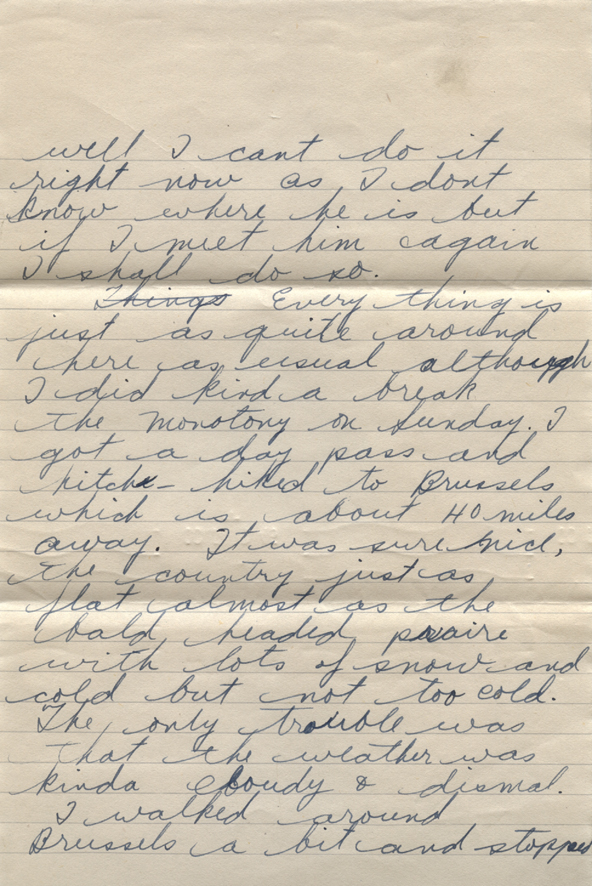 well I cant do it
right now as I dont
know where he is but
if I meet him again
I shall do so.
Things Every thing is
just as quite around
here as usual although
I did kind a break
the monotony on Sunday. I
got a day pass and
hitch - hiked to Brussels
which is about 40 miles
away. It was sure nice,
the country just as
flat almost as the
bald headed praire
with lots of snow and
cold but not too cold.
The only trouble was
that the weather was
kinda cloudy & dismal.
I walked around
Brussels a bit and stopped